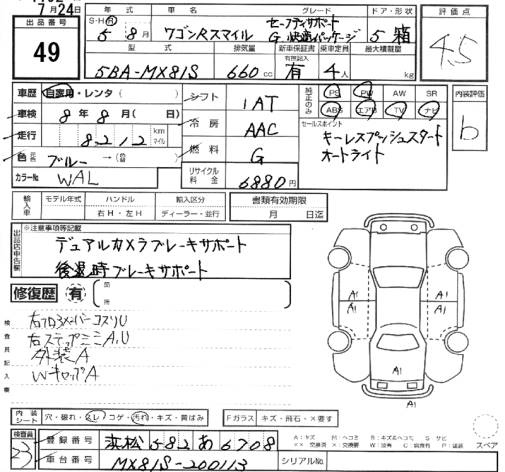 7月24日
出品番号
49
年式
車名
グレード
ドア・形状
評価点
S・H
5年8月
ワゴンRスマイル
セーフティサポート
G 快適パッケージ
5 箱
4.5
型式
排気量
新車保証書
有無記入
乗車定員
最大積載量
5BA-MX81S
660cc
有
4人
kg
車歴 自家用・レンタ( )
シフト 1AT
純正のみ
PS PW AW SR
ABS エアB TV ナビ
内装評価
b
車検 8年8月( 日)
冷房 AAC
セールスポイント
キーレスプッシュスタート
オートライト
走行 8,212 km マイル
燃料 G
色 ブルー →( )
リサイクル料金 6880円
カラーNo WAL
輸入車
モデル年式
ハンドル
輸入区分
書類有効期限
右H・左H
ディーラー・並行
月 日迄
出品店申告欄
※注意事項等記載
デュアルカメラブレーキサポート
後退時ブレーキサポート
修復歴 有
箇所
検査員記入欄
右ステップミミA,U
外装A
WキャップA
A1
A1
A1
A1
A1
内装シート
穴・破れ・スレ・コゲ・汚れ・キズ・黄ばみ
Fガラス
キズ・飛石・×要す
検査員
23
登録番号
浜松582あ6708
車台番号
MX81S-200113
シリアルNo.
スペア